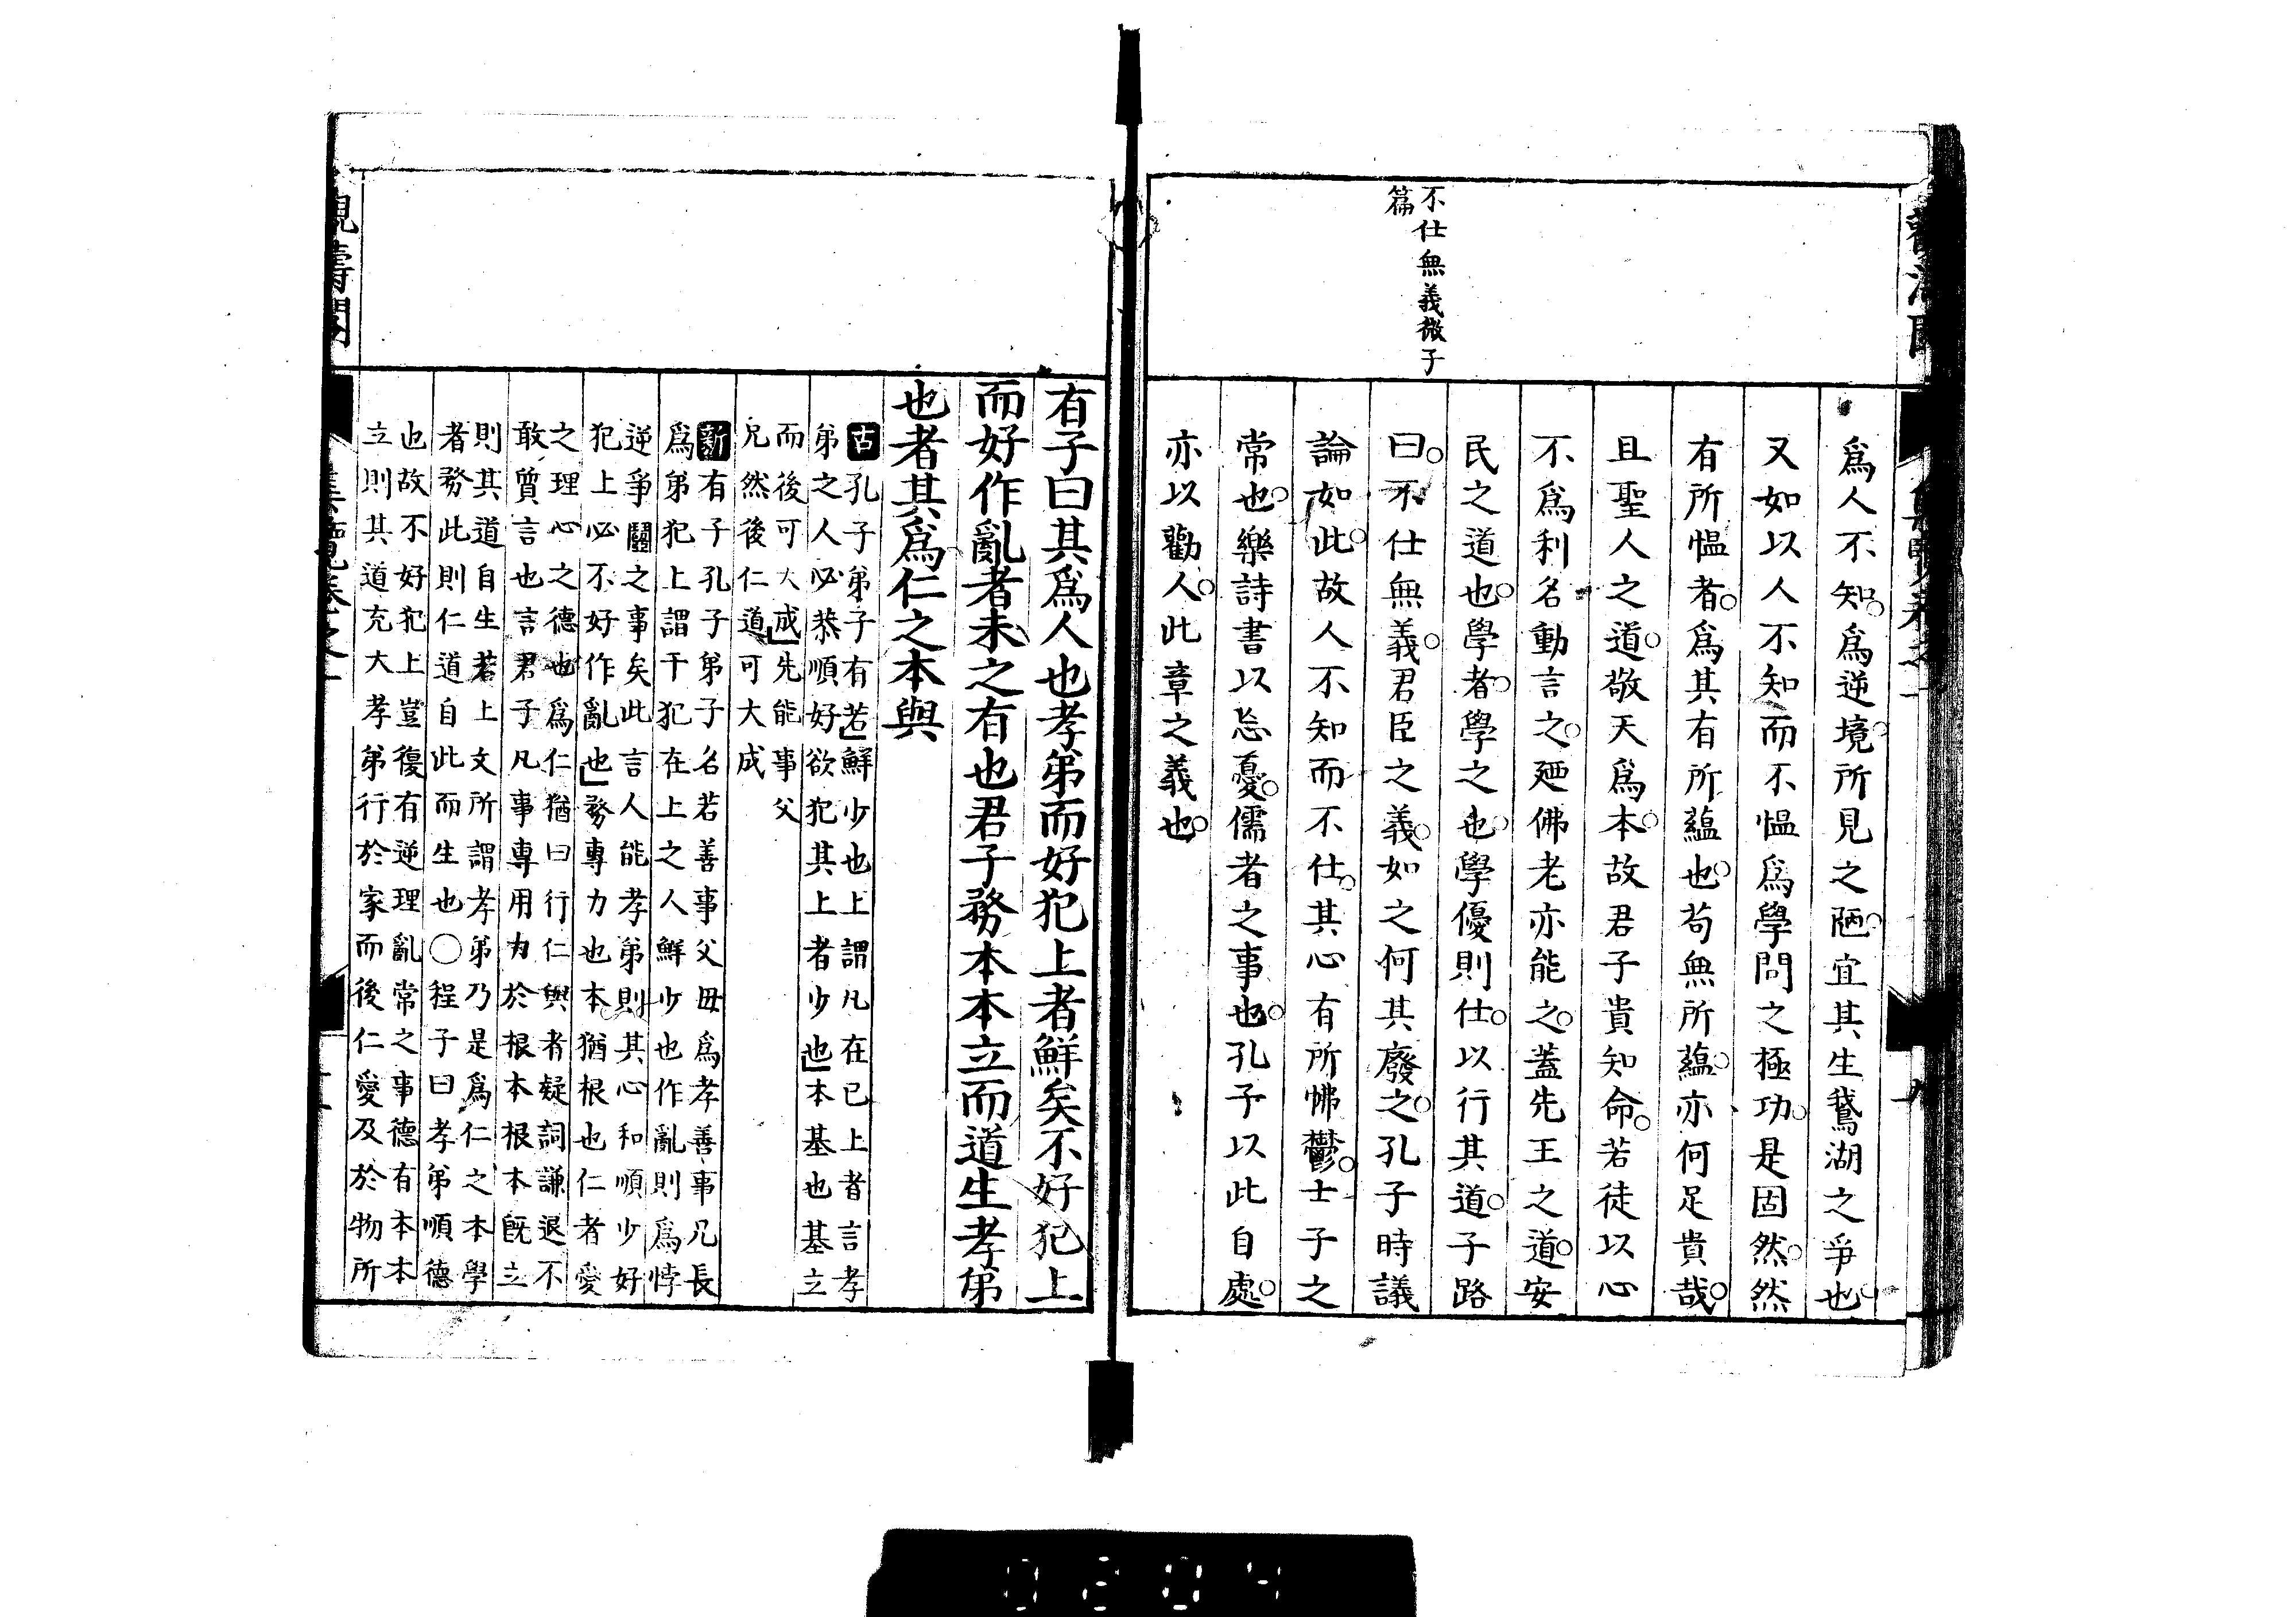 不仕無義微子
篇
爲人不知爲逆境所見之陋宜其生鵞湖之爭也
又如以人不知而不慍爲學問之極功是固然然
有所慍者爲其有所蘊也苟無所蘊亦何足貴哉
且聖人之道敬天爲本故君子貴知命若徒以心
不爲利名動言之廼佛老亦能之蓋先王之道安
民之道也學者學之也學優則仕以行其道子路
曰不仕無義君臣之義如之何其廢之孔子時議
論如此故人不知而不仕其心有所怫鬱士子之
常也樂詩書以忘憂儒者之事也孔子以此自處
亦以勸人此章之義也
有子曰其爲人也孝弟而好犯上者鮮矣不好犯上
而好作亂者未之有也君子務本本立而道生孝弟
也者其爲仁之本與
古孔子弟子有若鮮少也上謂凡在已上者言孝
弟之人必恭順好欲犯其上者少也本基也基立
而後可大成先能事父
兄然後仁道可大成
新有子孔子弟子名若善事父毋爲孝善事兄長
爲弟犯上謂干犯在上之人鮮少也作亂則爲悖
逆爭鬬之事矣此言人能孝弟則其心和順少好
犯上必不好作亂也務專力也本猶根也仁者愛
之理心之德也爲仁猶曰行仁與者疑詞謙退不
敢質言也言君子凡事專用力於根本根本旣立
則其道自生若上文所謂孝弟乃是爲仁之本學
者務此則仁道自此而生也〇程子曰孝弟順德
也故不好犯上豈復有逆理亂常之事德有本本
立則其道充大孝弟行於家而後仁愛及於物所
0204